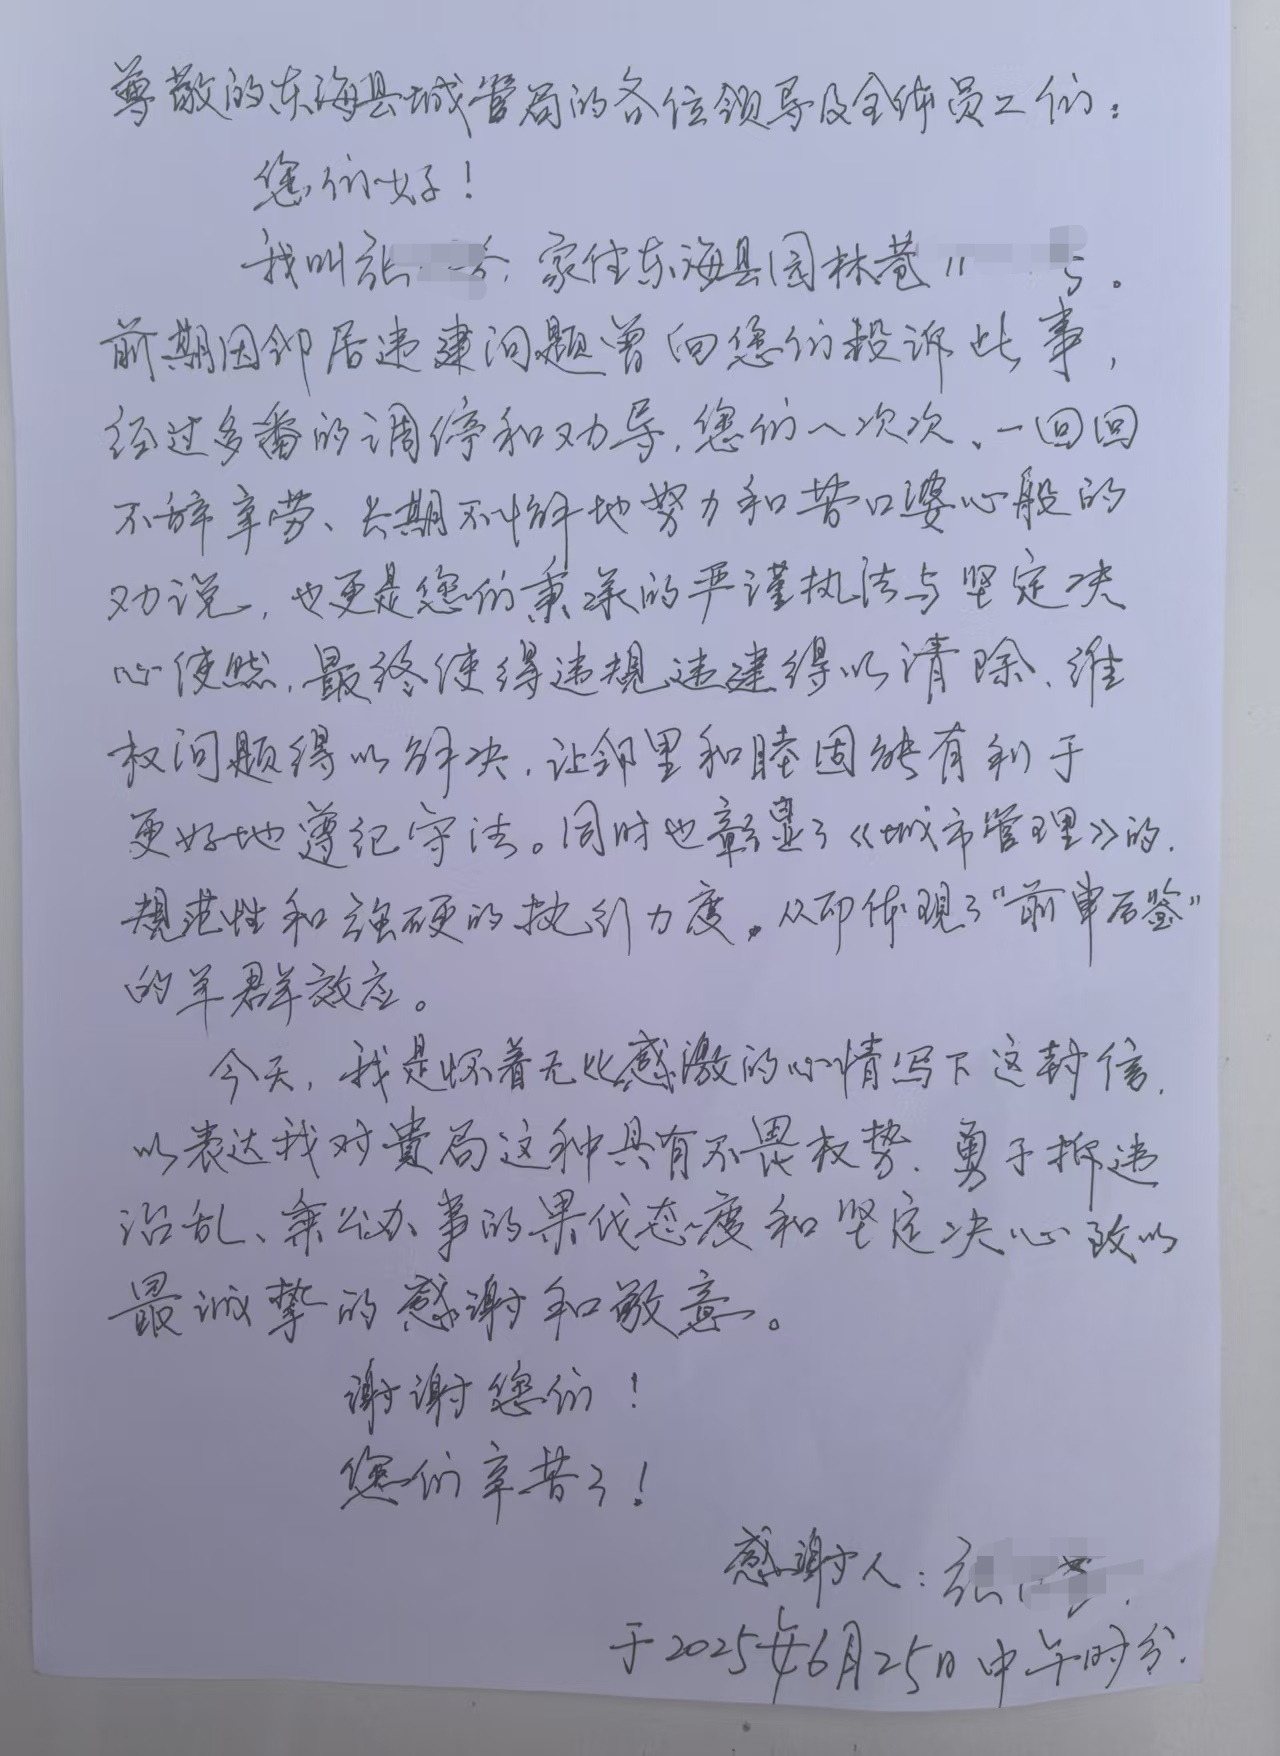 尊敬的东海县城管局的各位领导及全体员工们：
您们好！
我叫张 家住东海县园林巷11 号。
前期因邻居违建问题曾向您们投诉此事，
经过多番的调停和劝导，您们一次次、一回回
不辞辛劳、长期不懈地努力和苦口婆心般的
劝说，也更是您们秉承的严谨执法与坚定决
心使然，最终使得违规违建得以清除、维
权问题得以解决，让邻里和睦固能有利于
更好地遵纪守法。同时也彰显了《城市管理》的
规范性和强硬的执行力度。从而体现了“前车后鉴”
的羊群效应。
今天，我是怀着无比感激的心情写下这封信，
以表达我对贵局这种具有不畏权势、勇于拆违
治乱、秉公办事的果伐态度和坚定决心致以
最诚挚的感谢和敬意。
谢谢您们！
您们辛苦了！
感谢人：张
于2025年6月25日中午时分.